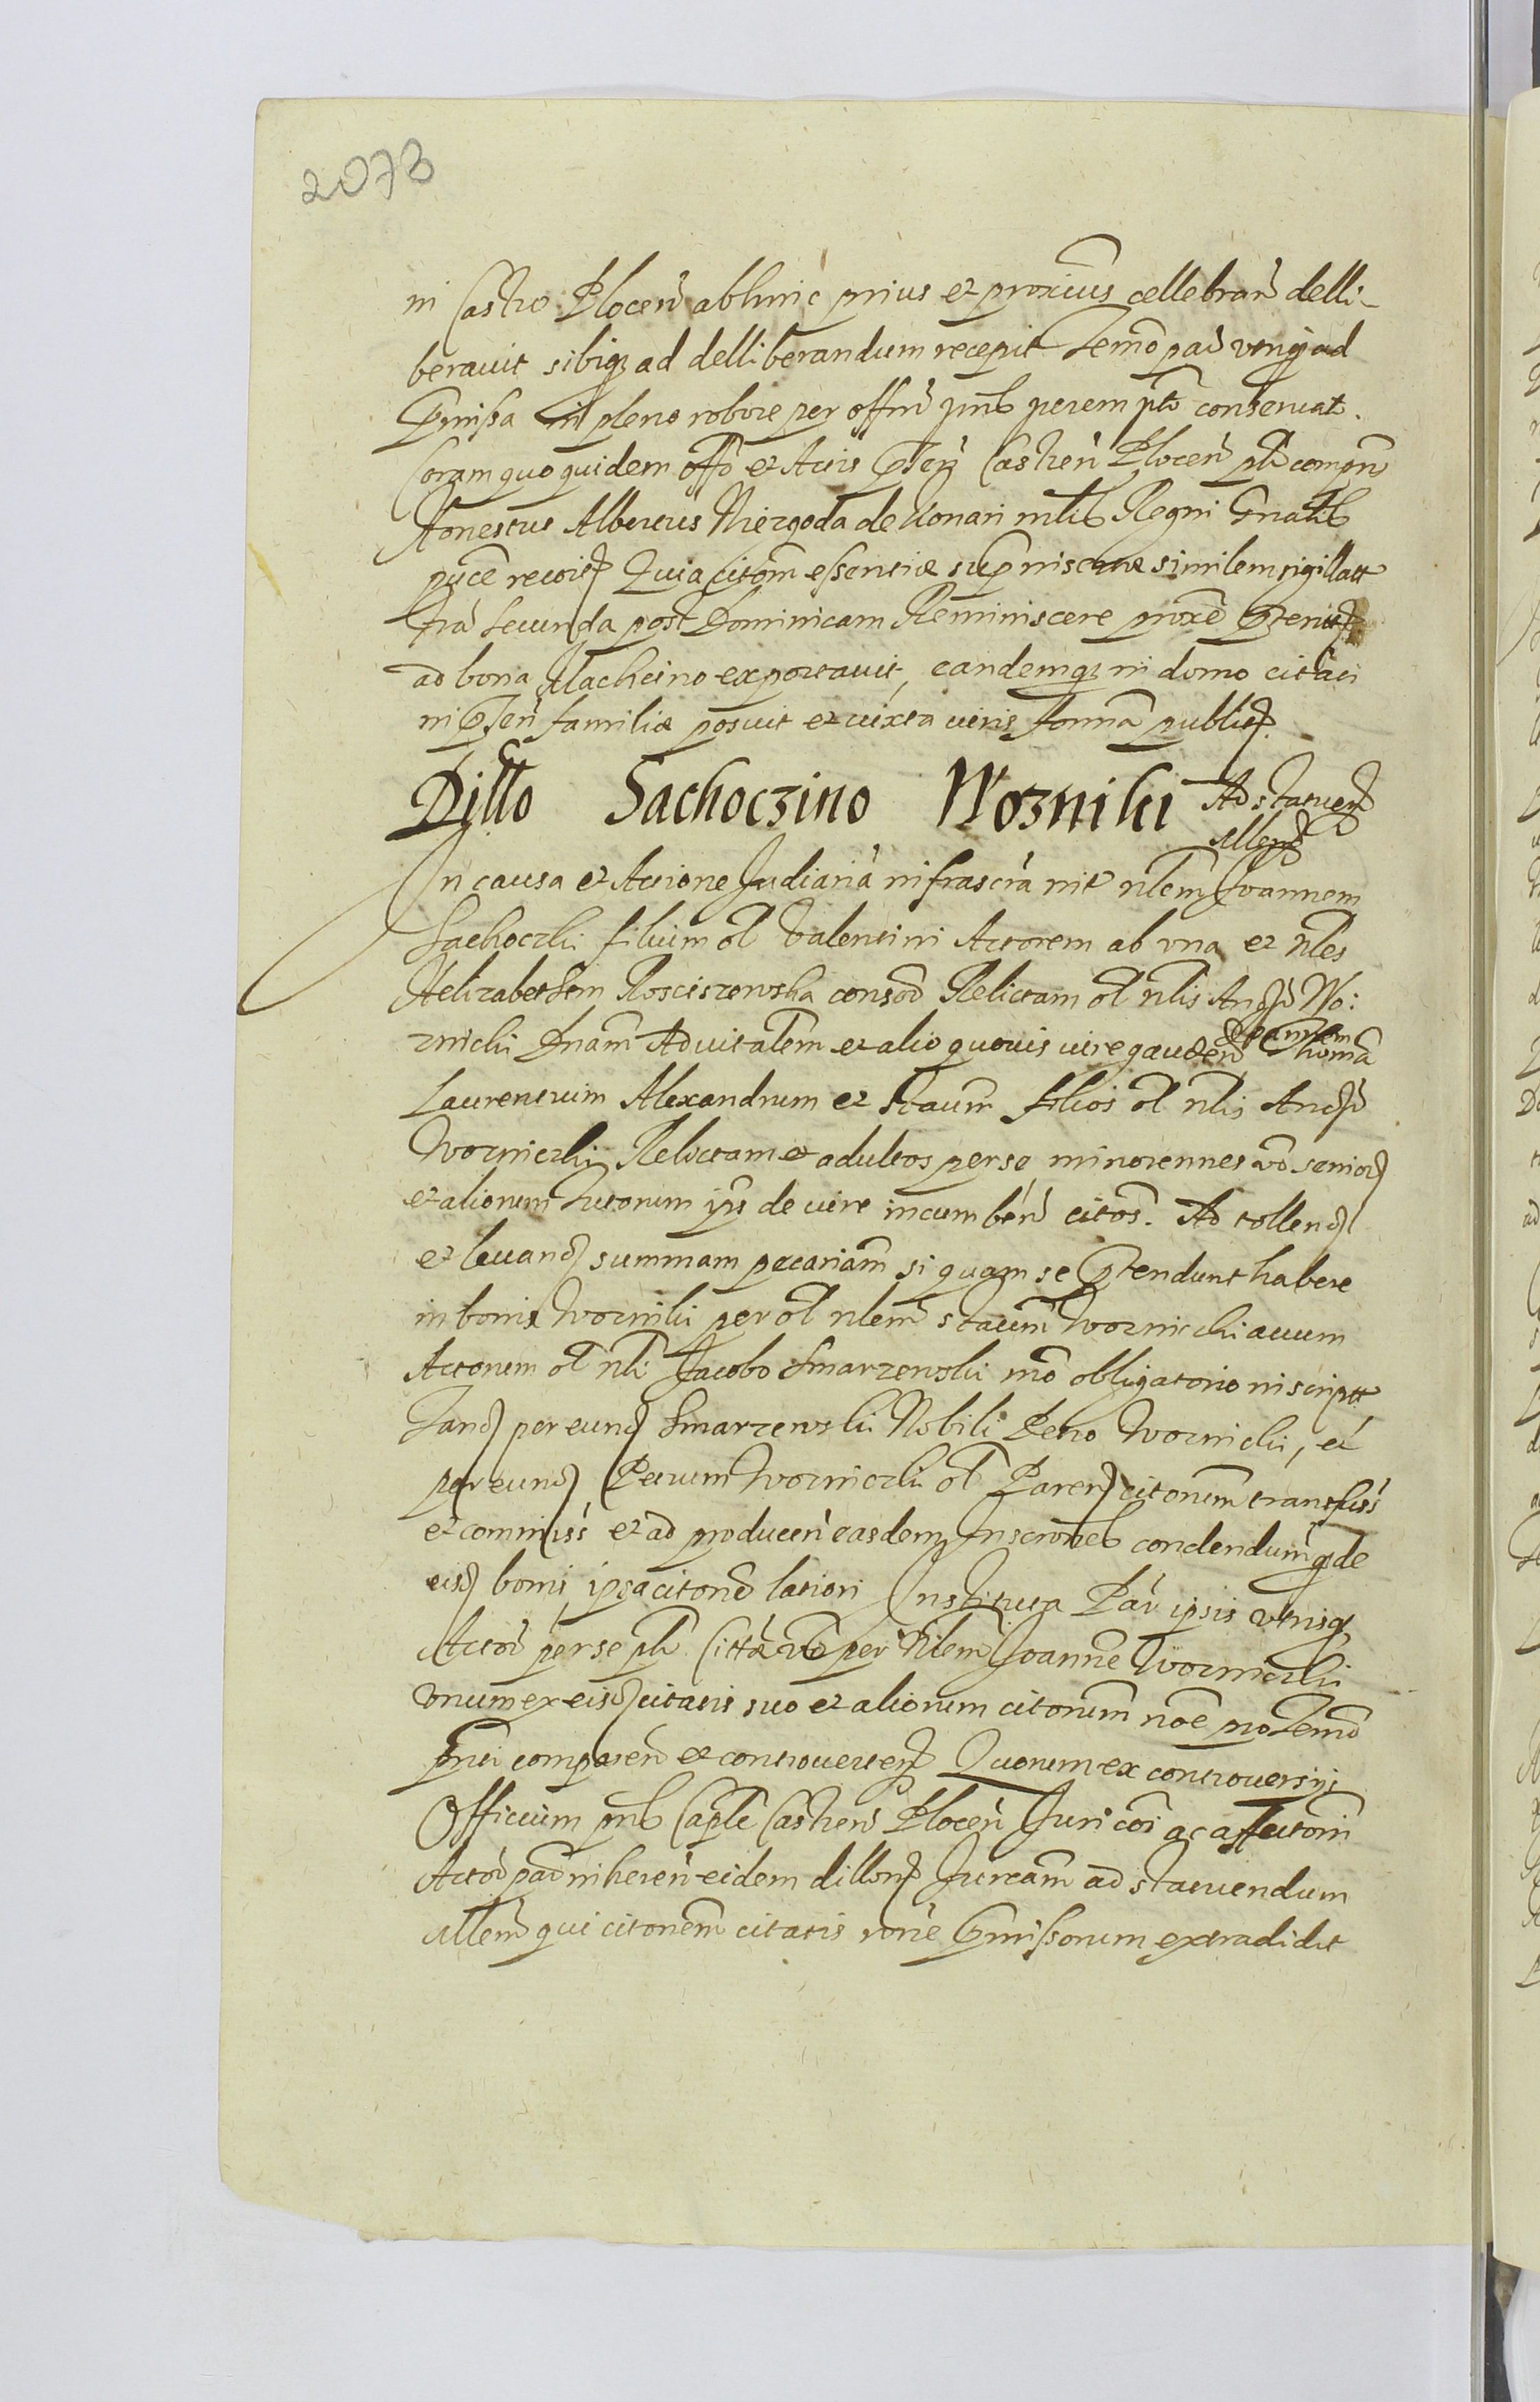 2073
in Castro Plocen abhinc prius et proximis cellebran delli-
berauit sibiq ad delliberandum recepit termo par vtriq ad
pmissa in pleno robore per offm pns perempto conseruat.
Coram quo quidem offo et Actis pnt Castren Plocen pli compns
Honestus Albertus Niezgoda de Konari mlis Regni Gnalis
pce recoit Quia citom essentiæ supmisertæ similem sigillatt
fra Secunda post Dominicam Reminiscere proxe pterit
ad bona Machcino exportauit, eandemq in domo citati
in psen familiæ posuit et iuxta iuris formã publict.
Dillo Sachoczino Wozniki Ad statuend
Mllem
In causa et Actione Judiaria infrascra int nlem Joannem
Sachoczki filium ol Valentini Actorem ab vna et nles
Helizabethem Rosciszewska consod Relictam ol nlis Andr Wo:
znicki Dnam Aduitalem et alio quouis iure gauden Thoma
Joannem
Laurentium Alexandrum et Staum filios ol nlis Andr
Wozniczki Relictam et adultos per se, minorennes vo senior
et aliorum tutorum ipis de iure incumben citos. Ad tollend
et leuand summam pecariam si quam se ptendunt habere
in bonis Wozniki per ol nlem Staum Woznicki auum
Actorum ol nli Jacobo Smarzewski mo obligatorio inscriptt
Tand per eund Smarzewski Nobili Petro Woznicki, et
per eund Petrum Wozniczki ol Paren citorum transfuss
et commiss et ad producen easdem Inscrones condendumq de
eisd bonis ipsa citone latiori Instituta Par ipsis vtrisq
Actor per se pli Citta vo per Nlem Joanne Wozniczki
vnum ex eisd citatis suo et aliorum citorum noe pro termo
pnti comparen et controuerten Quorum ex controuersijs
Officium pns Caple Castren Plocen Juri coi ac affectoni
Actor par inheren eidem dillond Jurcam ad statuendum
Mllem qui citonem citatis rone pmissorum extradidit